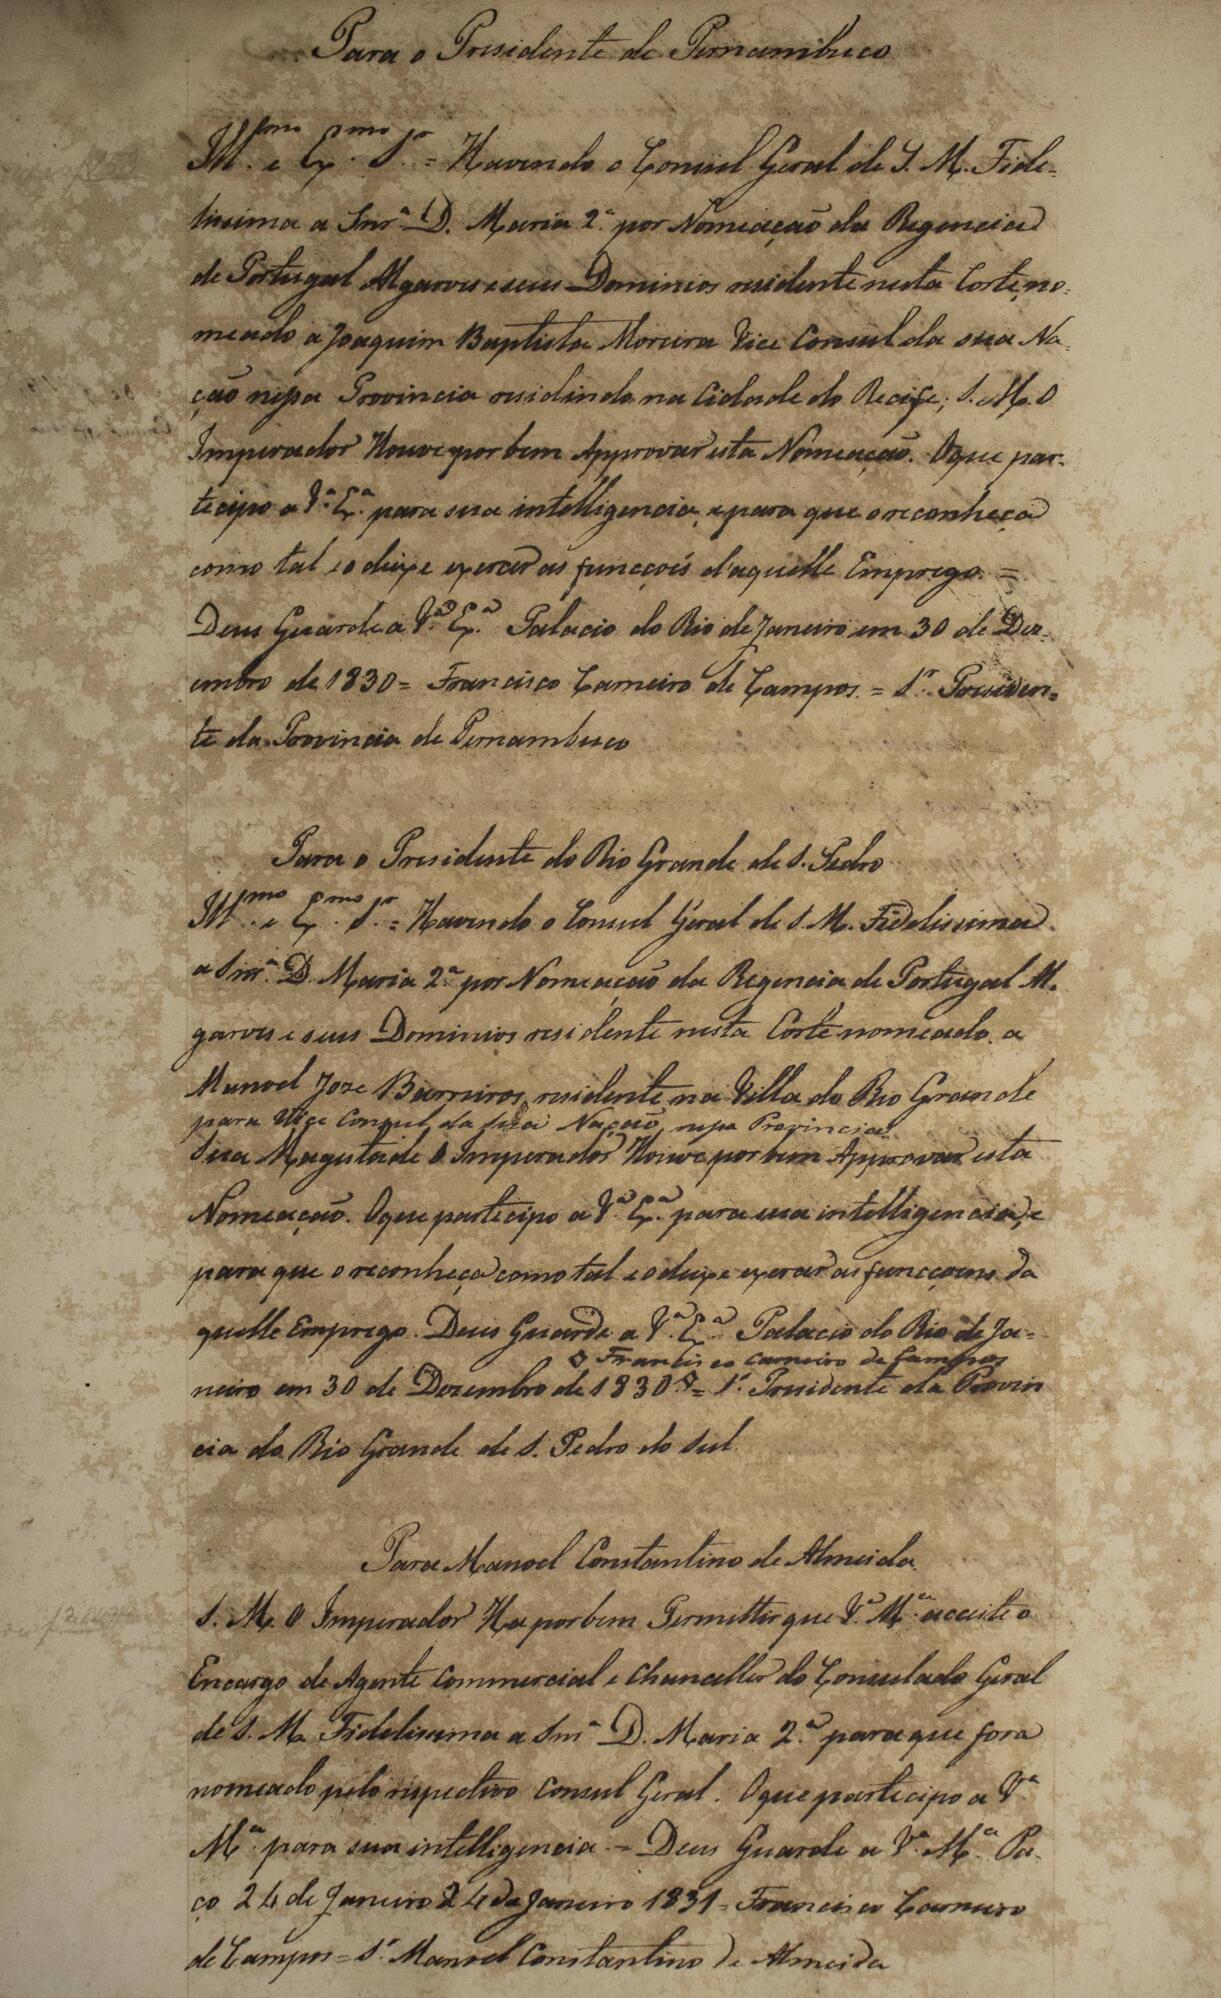 Para o Presidente de Pernambuco
Ill.mo e Ex.mo S.r = Havendo o Consul Geral de S. M. Fide-
lissima a Snr.a D. Maria 2.a por Nomeação da Regencia
de Portugal Algarves e seus Dominios residente nesta Corte, no-
meado a Joaquim Baptista Moreira Vice Consul da sua Na-
ção nessa Provincia residindo na Cidade do Recife; S. M. O
Imperador Houve por bem Approvar esta Nomeação. O que par-
tecipo a V.a Ex.a para sua intelligencia, e para que o reconheça
como tal e o deixe exercer as funcçois d'aquelle Emprego =
Deus Guarde a V.a Ex.a Palacio do Rio de Janeiro em 30 de Dez-
embro de 1830 = Francisco Carneiro de Campos = S.r Presiden-
te da Provincia de Pernambuco
Para o Presidente do Rio Grande de S. Pedro
Ill.mo e Ex.mo S.r = Havendo o Consul Geral de S. M. Fidelissima
a Snr.a D. Maria 2.a por Nomeação da Regencia de Portugal Al-
garves e seus Dominios residente nesta Corte nomeado a
Manoel Joze Barreiros, residente na Villa do Rio Grande
para Vice Consul da sua Nação nessa Provincia
Sua Magestade O Imperador Houve por bem Approvar esta
Nomeação. O que partecipo a V.a Ex.a para sua intelligencia, e
para que o reconheça como tal e o deixe exercer as funcçoens da
quelle Emprego. Deus Guarde a V.a Ex.a Palacio do Rio de Ja-
Francisco Carneiro de Campos
neiro em 30 de Dezembro de 1830 = S.r Presidente da Provin
cia do Rio Grande de S. Pedro do Sul
Para Manoel Constantino de Almeida
S. M. O Imperador Ha por bem Permittir que V.a M.ce acceite o
Encargo de Agente Commercial e Chanceller do Consulado Geral
de S. M. Fidelissima a Snr.a D. Maria 2.a para que fora
nomeado pelo respectivo Consul Geral. O que partecipo a V.a
M.ce para sua intelligencia = Deus Guarde a V.a M.ce Pa-
ço 24 de Janeiro 24 de Janeiro 1831 = Francisco Carneiro
de Campos = S.r Manoel Constantino de Almeida